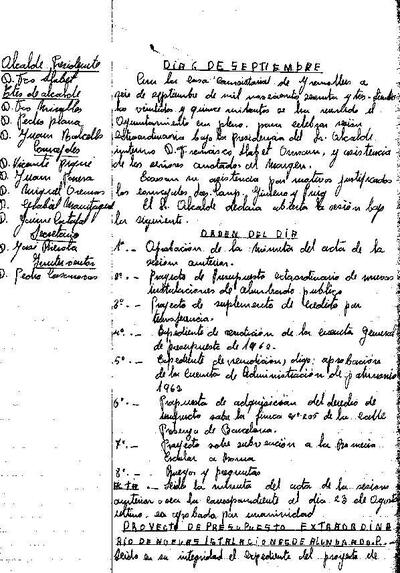 Alcalde Presidente
D. Fco Llobet
Ttes de alcalde
D. Pedro Plana
D. Juan
Concejales
D. Vicente
D. Juan
D. Miguel
D.
D. Jaime
Secretario
D. José
Interventor
D. Pedro
DIA 6 DE SEPTIEMBRE
En la Casa Consistorial de Granollers a
seis de septiembre de mil novecientos sesenta y tres, siendo
las veintidos y quince minutos se ha reunido el
Ayuntamiento en pleno, para celebrar sesión
extraordinaria bajo la presidencia del Sr. Alcalde
interino D. Francisco Llobet y asistencia
de los señores anotados al margen.
Excusan su asistencia por motivos justificados
los concejales
El Sr. Alcalde declara abierta la sesión bajo
la siguiente
ORDEN DEL DIA
1º.- Aprobación de la minuta del acta de la
sesión anterior.
2º.- Proyecto de Presupuesto extraordinario de nuevas
instalaciones de alumbrado público
3º.- Proyecto de suplemento de crédito por
transferencia.
4º.- Expediente de rendición de la cuenta General
de presupuesto de 1962.
5º.- Expediente de rendición, digo: aprobación
de la Cuenta de Administración de patrimonio
1962
6º.- Propuesta de adquisición del derecho de
usufructo sobre la finca nº 205 de la calle
Provenza de Barcelona.
7º.- Proyecto sobre subvención a la
Escolar a Roma
8º.- Ruegos y preguntas
Leída la minuta del acta de la sesión
anterior o sea la correspondiente al dia 23 de Agosto
último, es aprobada por unanimidad
PROYECTO DE PRESUPUESTO EXTRAORDINA
RIO DE NUEVAS ISTALACIONES DE ALUMBRADO.P.-
Leído en su integridad el expediente del proyecto de